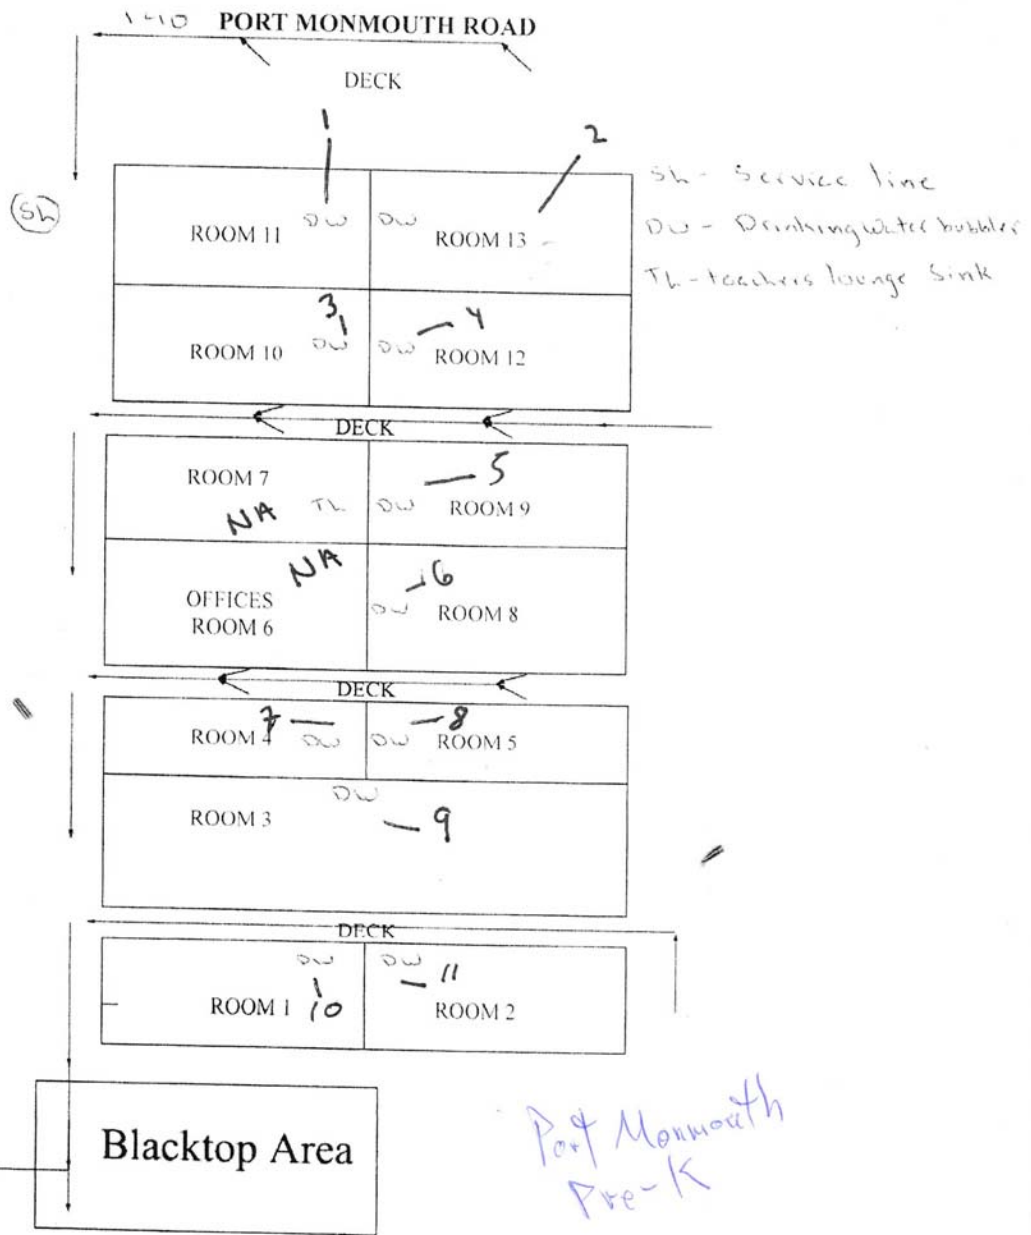 1-10 PORT MONMOUTH ROAD
DECK
1
2
SL - Service line
SL
DW DW
ROOM 11
ROOM 13
DW - Drinking water bubbler
TL - teachers lounge Sink
3
4
DW DW
ROOM 10
ROOM 12
DECK
ROOM 7
5
NA TL DW ROOM 9
NA
6
OFFICES
ROOM 6
DW ROOM 8
DECK
7
8
ROOM 4 DW DW ROOM 5
DW
ROOM 3
9
DECK
DW DW
11
ROOM 1 10
ROOM 2
Blacktop Area
Port Monmouth
Pre-K